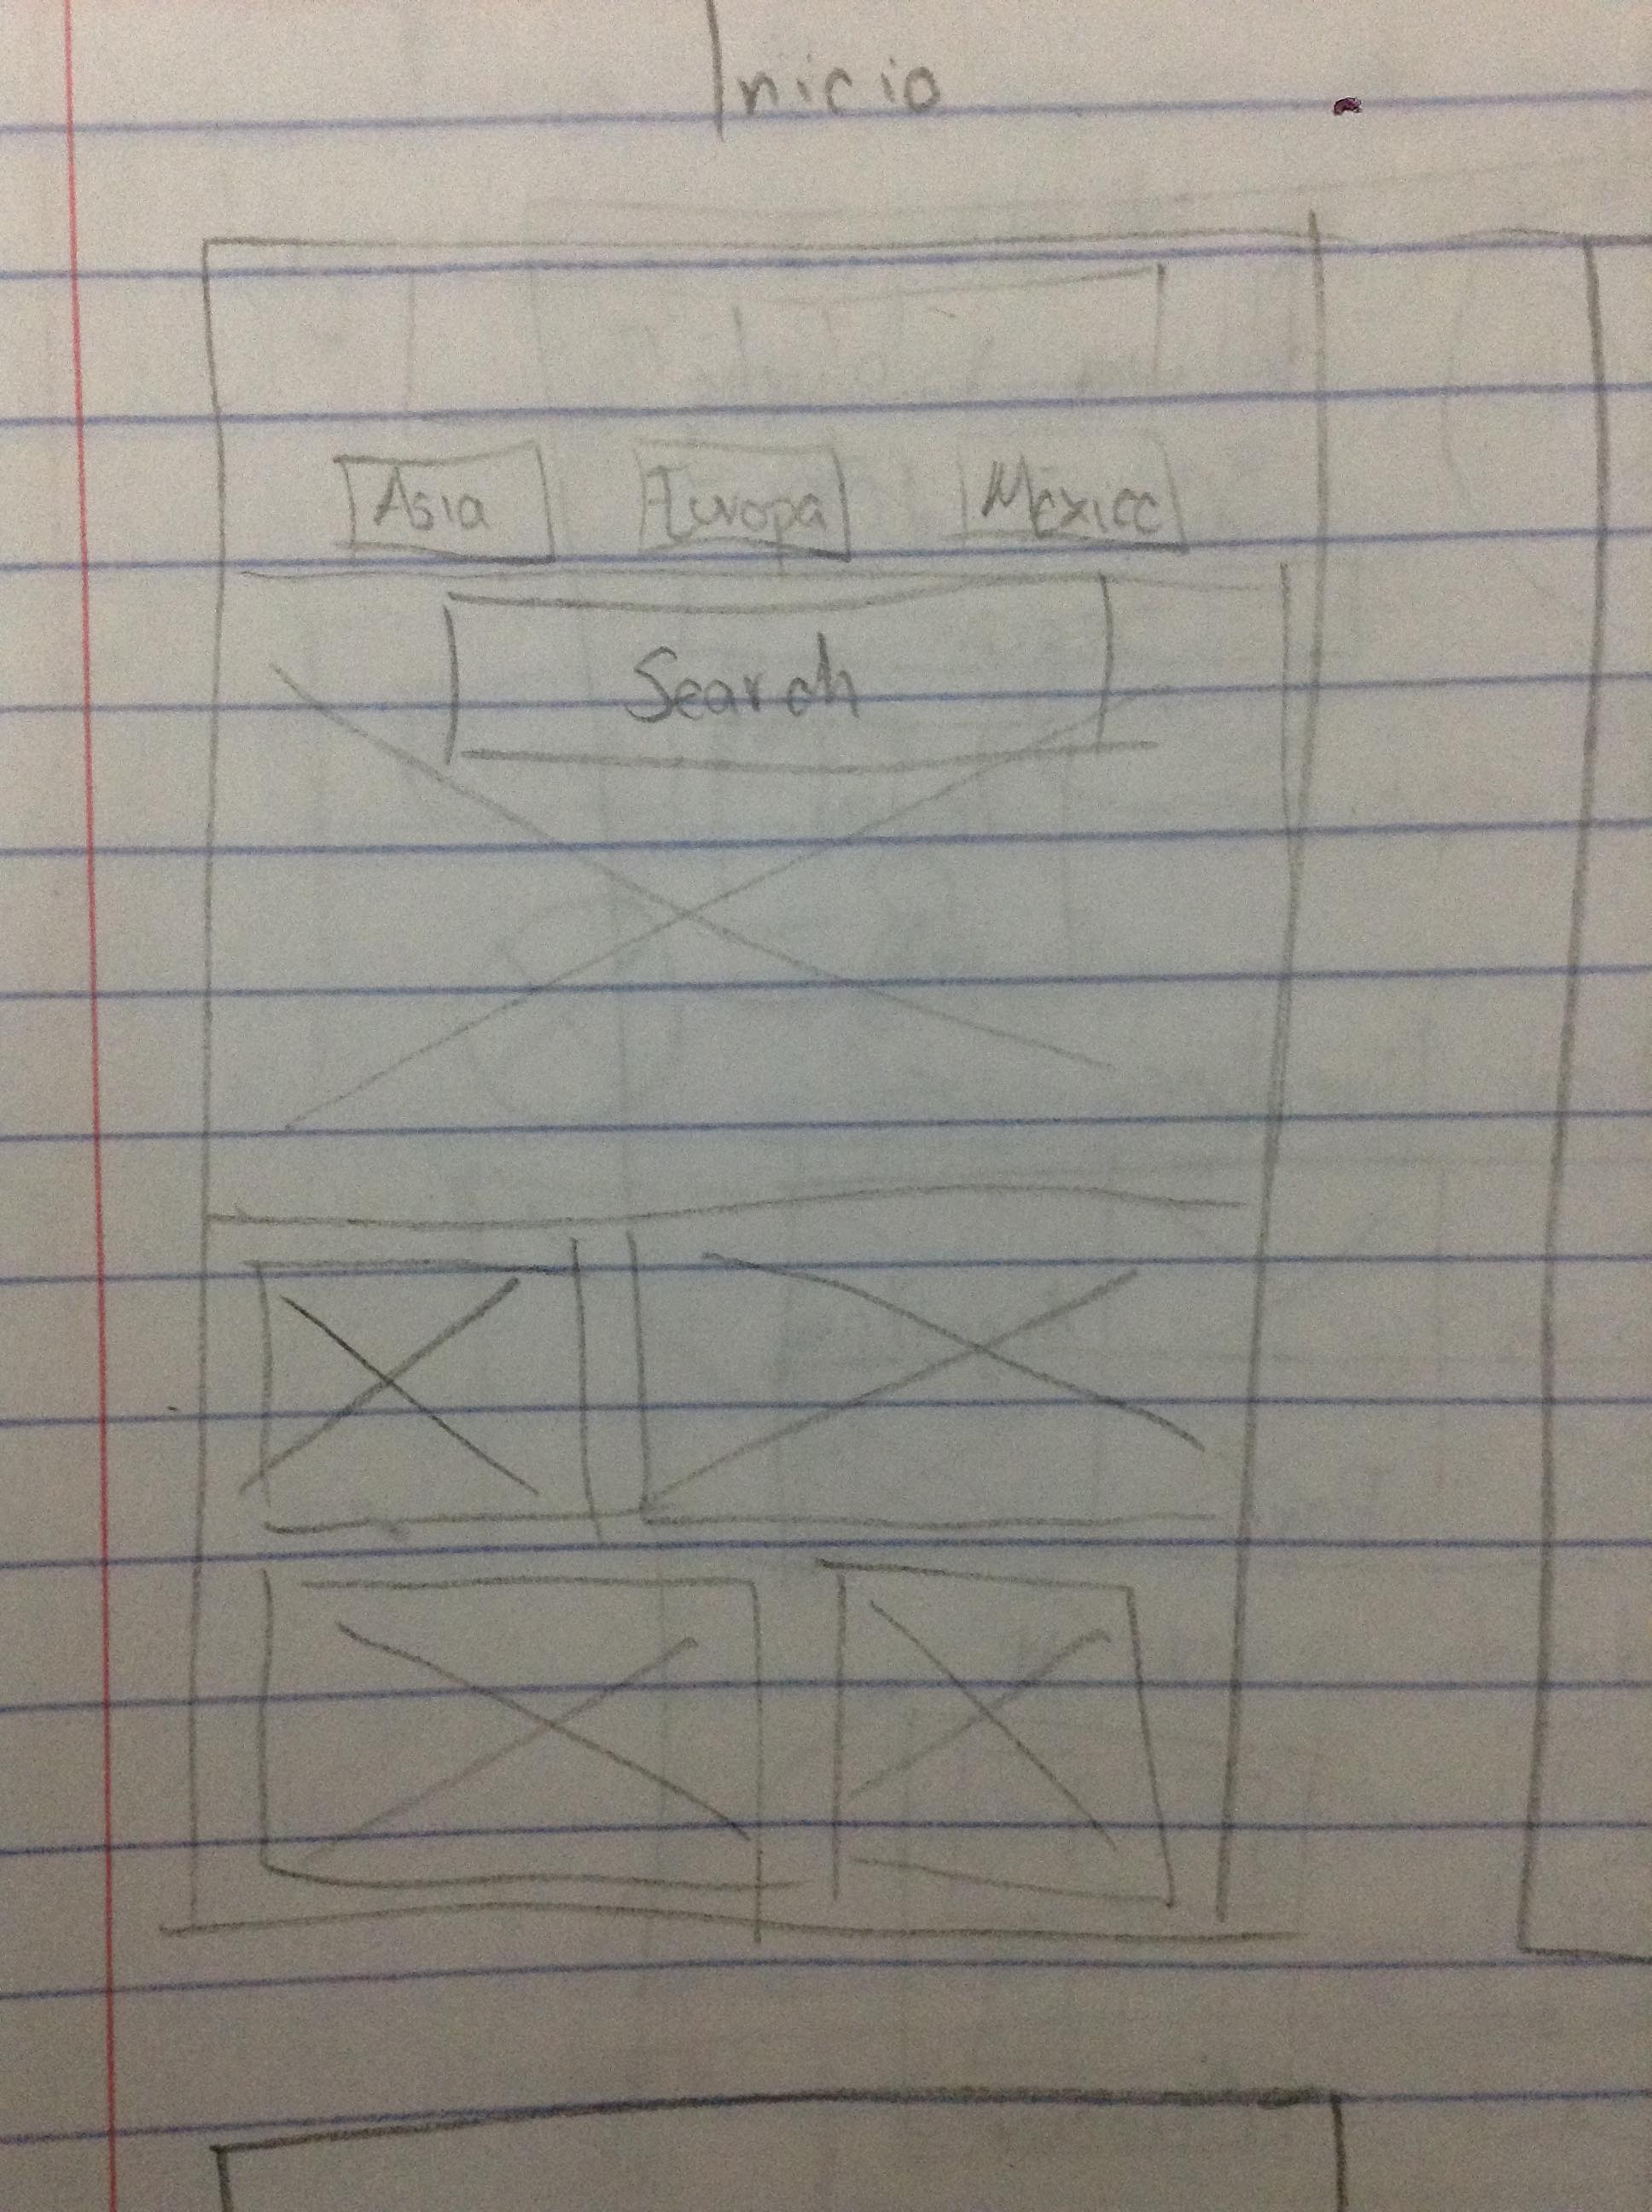 Inicio
Asia Europa Mexico
Search